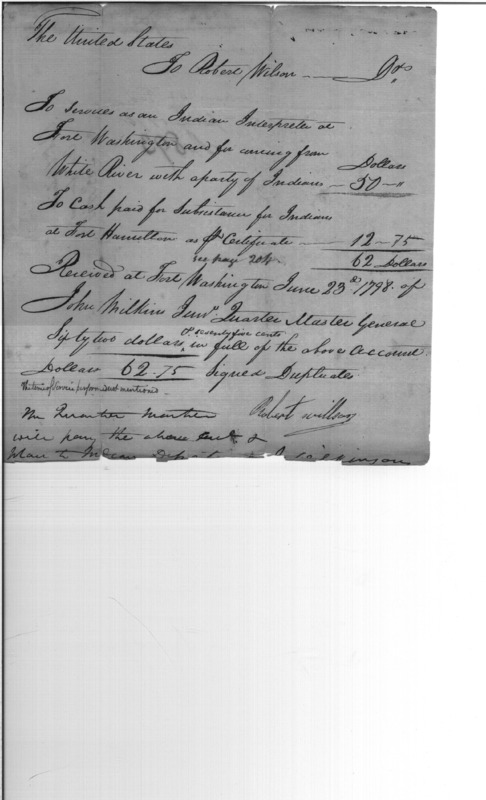 The United States
To Robert Wilson — Drs.
To services as an Indian Interpreter at
Fort Washington and for coming from
White River with a party of Indians — Dollars 50 — "
To Cash paid for Subsistance for Indians
at Fort Hamilton as Pr Certificate — 12 - 75
62 Dollars
Received at Fort Washington June 23d 1798. of
John Wilkins Junr. Quarter Master General
Sixty two dollars & seventy five cents in full of the above Account
Dollars 62 - 75 Signed Duplicates
The time of Service not mentioned
Robert Willson
The Quarter Master
will pay the above &
to Indian Wilkinson